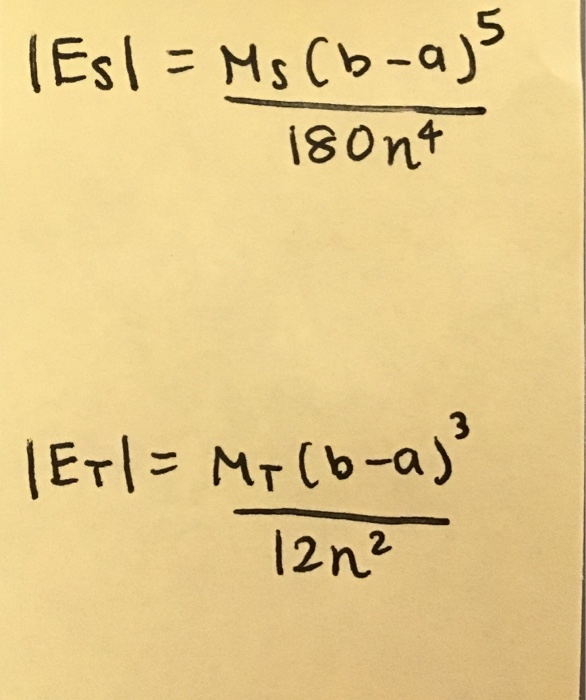 |Es| = Ms(b-a)⁵
180n⁴
|ET| = MT(b-a)³
12n²